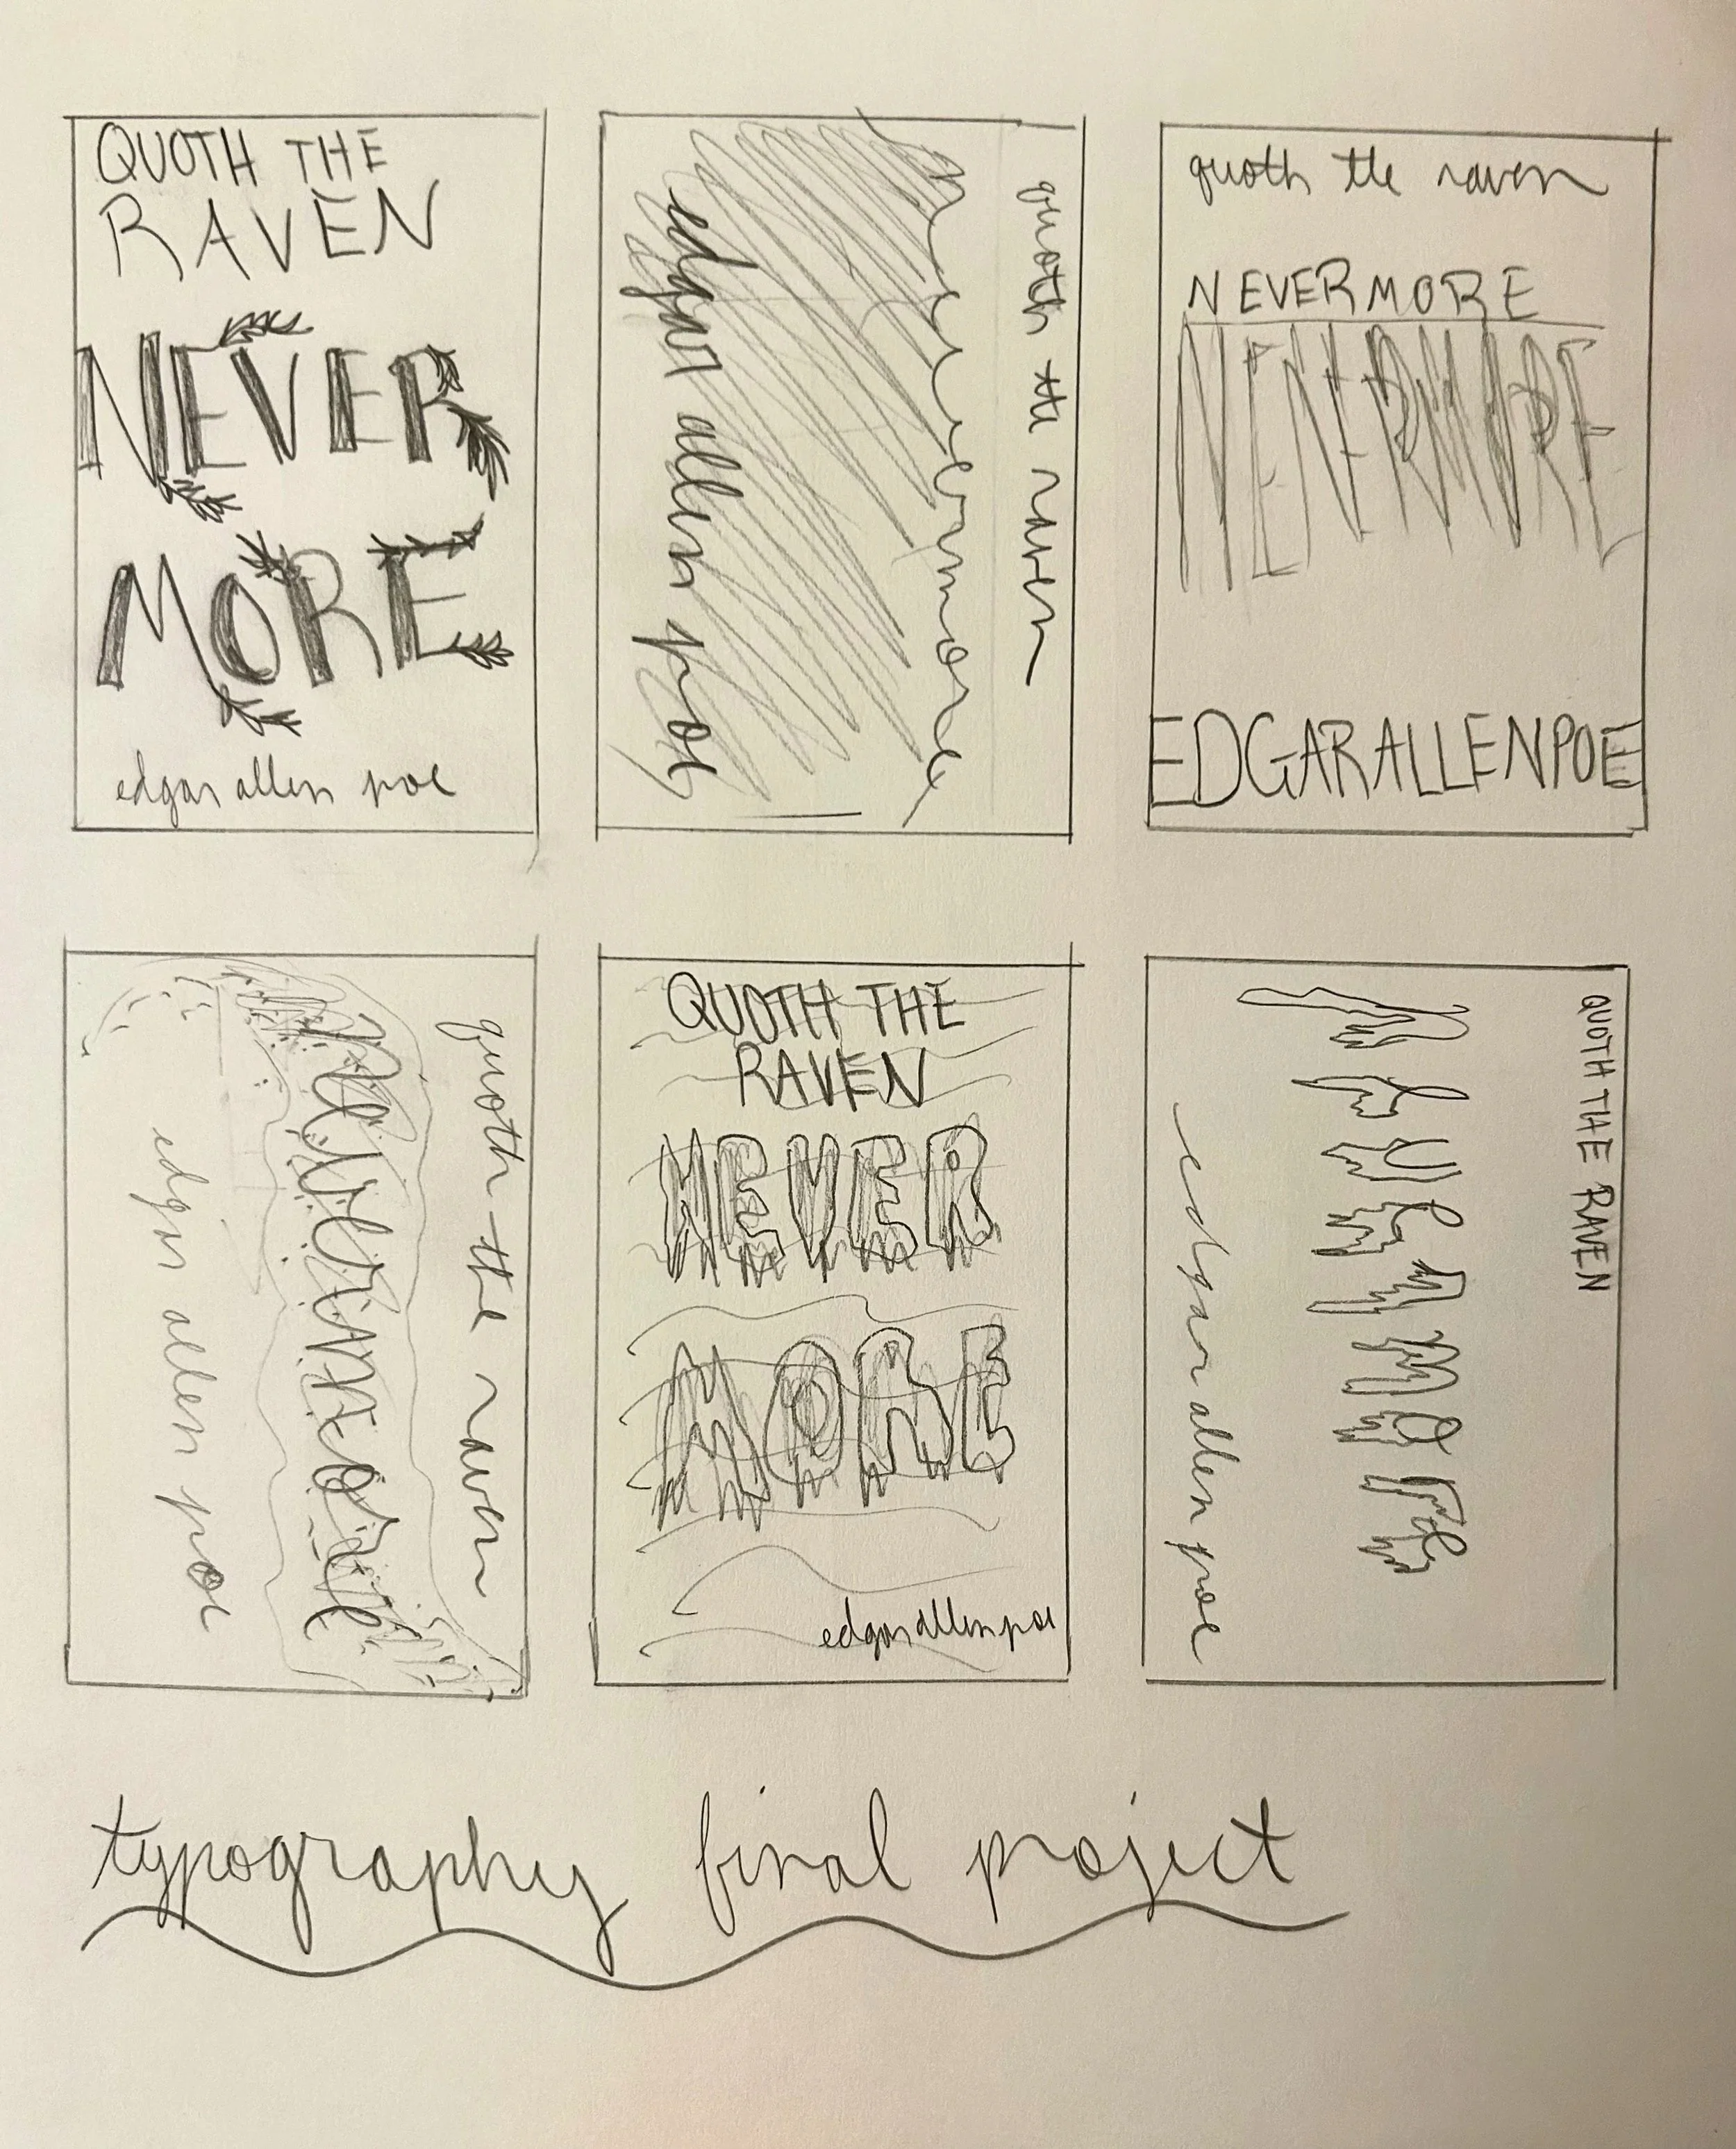 QUOTH THE
RAVEN
NEVER
MORE
edgar allen poe
quoth the raven
nevermore
edgar allen poe
quoth the raven
NEVERMORE
NEVERMORE
EDGARALLENPOE
quoth the raven
nevermore
edgar allen poe
QUOTH THE
RAVEN
NEVER
MORE
edgar allen poe
QUOTH THE RAVEN
nevermore
edgar allen poe
typography final project